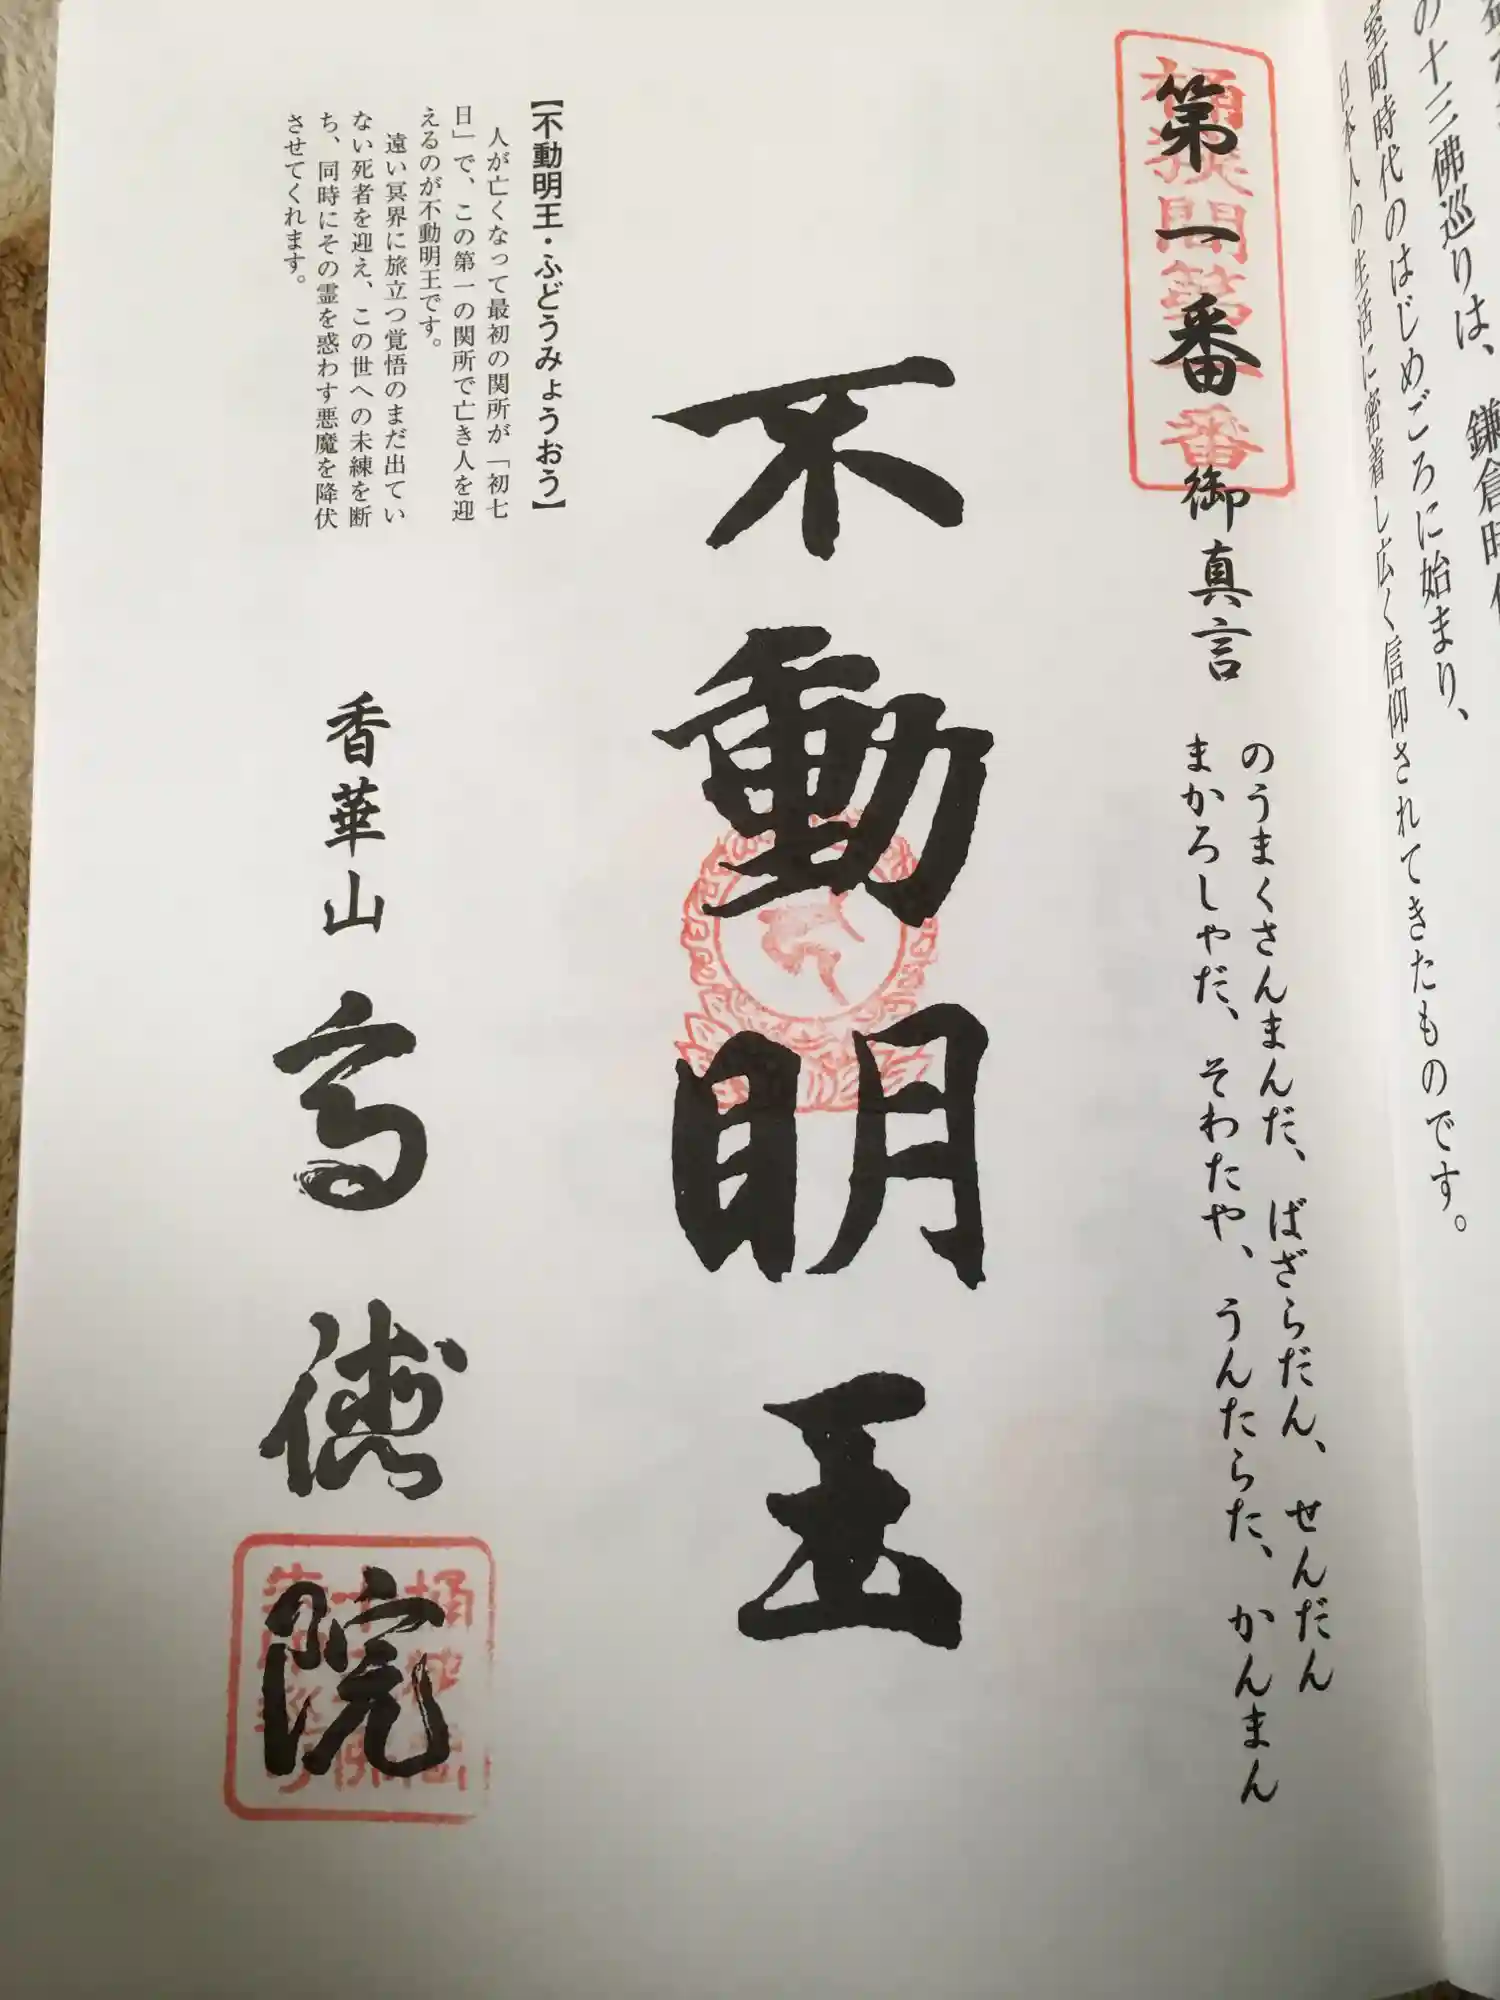 の十三佛巡りは、鎌倉時代
室町時代のはじめごろに始まり、
日本人の生活に密着し広く信仰されてきたものです。
桶狭間第一番
第一番 御真言
のうまくさんまんだ、ばざらだん、せんだん
まかろしゃだ、そわたや、うんたらた、かんまん
不動明王
【不動明王・ふどうみょうおう】
人が亡くなって最初の関所が「初七
日」で、この第一の関所で亡き人を迎
えるのが不動明王です。
遠い冥界に旅立つ覚悟のまだ出てい
ない死者を迎え、この世への未練を断
ち、同時にその霊を惑わす悪魔を降伏
させてくれます。
香華山 高徳院